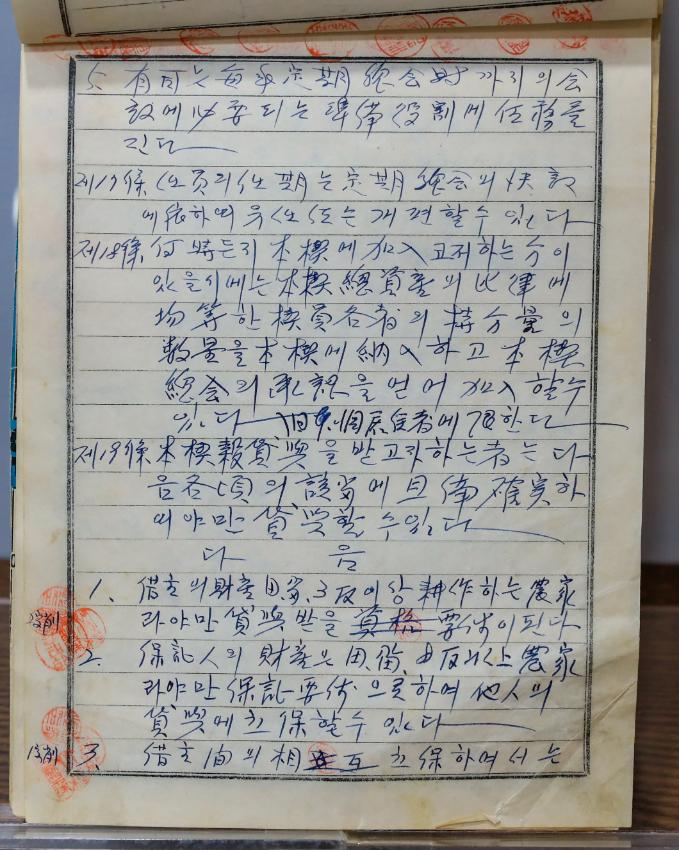 5. 有司는 每年 定期 總会時 까지의 会
議에 必要되는 準備 役割에 任務를
진다
제17條 任員의 任期는 定期 總会의 決議
에 依하여 유任 또는 개편 할수 있다
제18條 何時든지 本稧에 加入 코저하는 分이
있을시에는 本稧 總資産의 比律에
均等한 稧員各者의 持分量의
数量을 本稧에 納入하고 本稧
總会의 承認을 얻어 加入 할수
있다 居住者에 限한다
제19條 本稧 穀 貸與을 받고자 하는 者는 다
음 各項의 該当에 具備 確実하
여야만 貸與할 수 있다
다 음
1. 借主의 財産 田畓 3反 이상 耕作하는 農家
라야만 貸與 받을 資格 要件이 된다
2. 保証人의 財産은 田畓 反 以上 農家
라야만 保証 要件으로 하여 他人의
貸與에 立保할 수 있다
3. 借主 間의 相互 立保하여서는